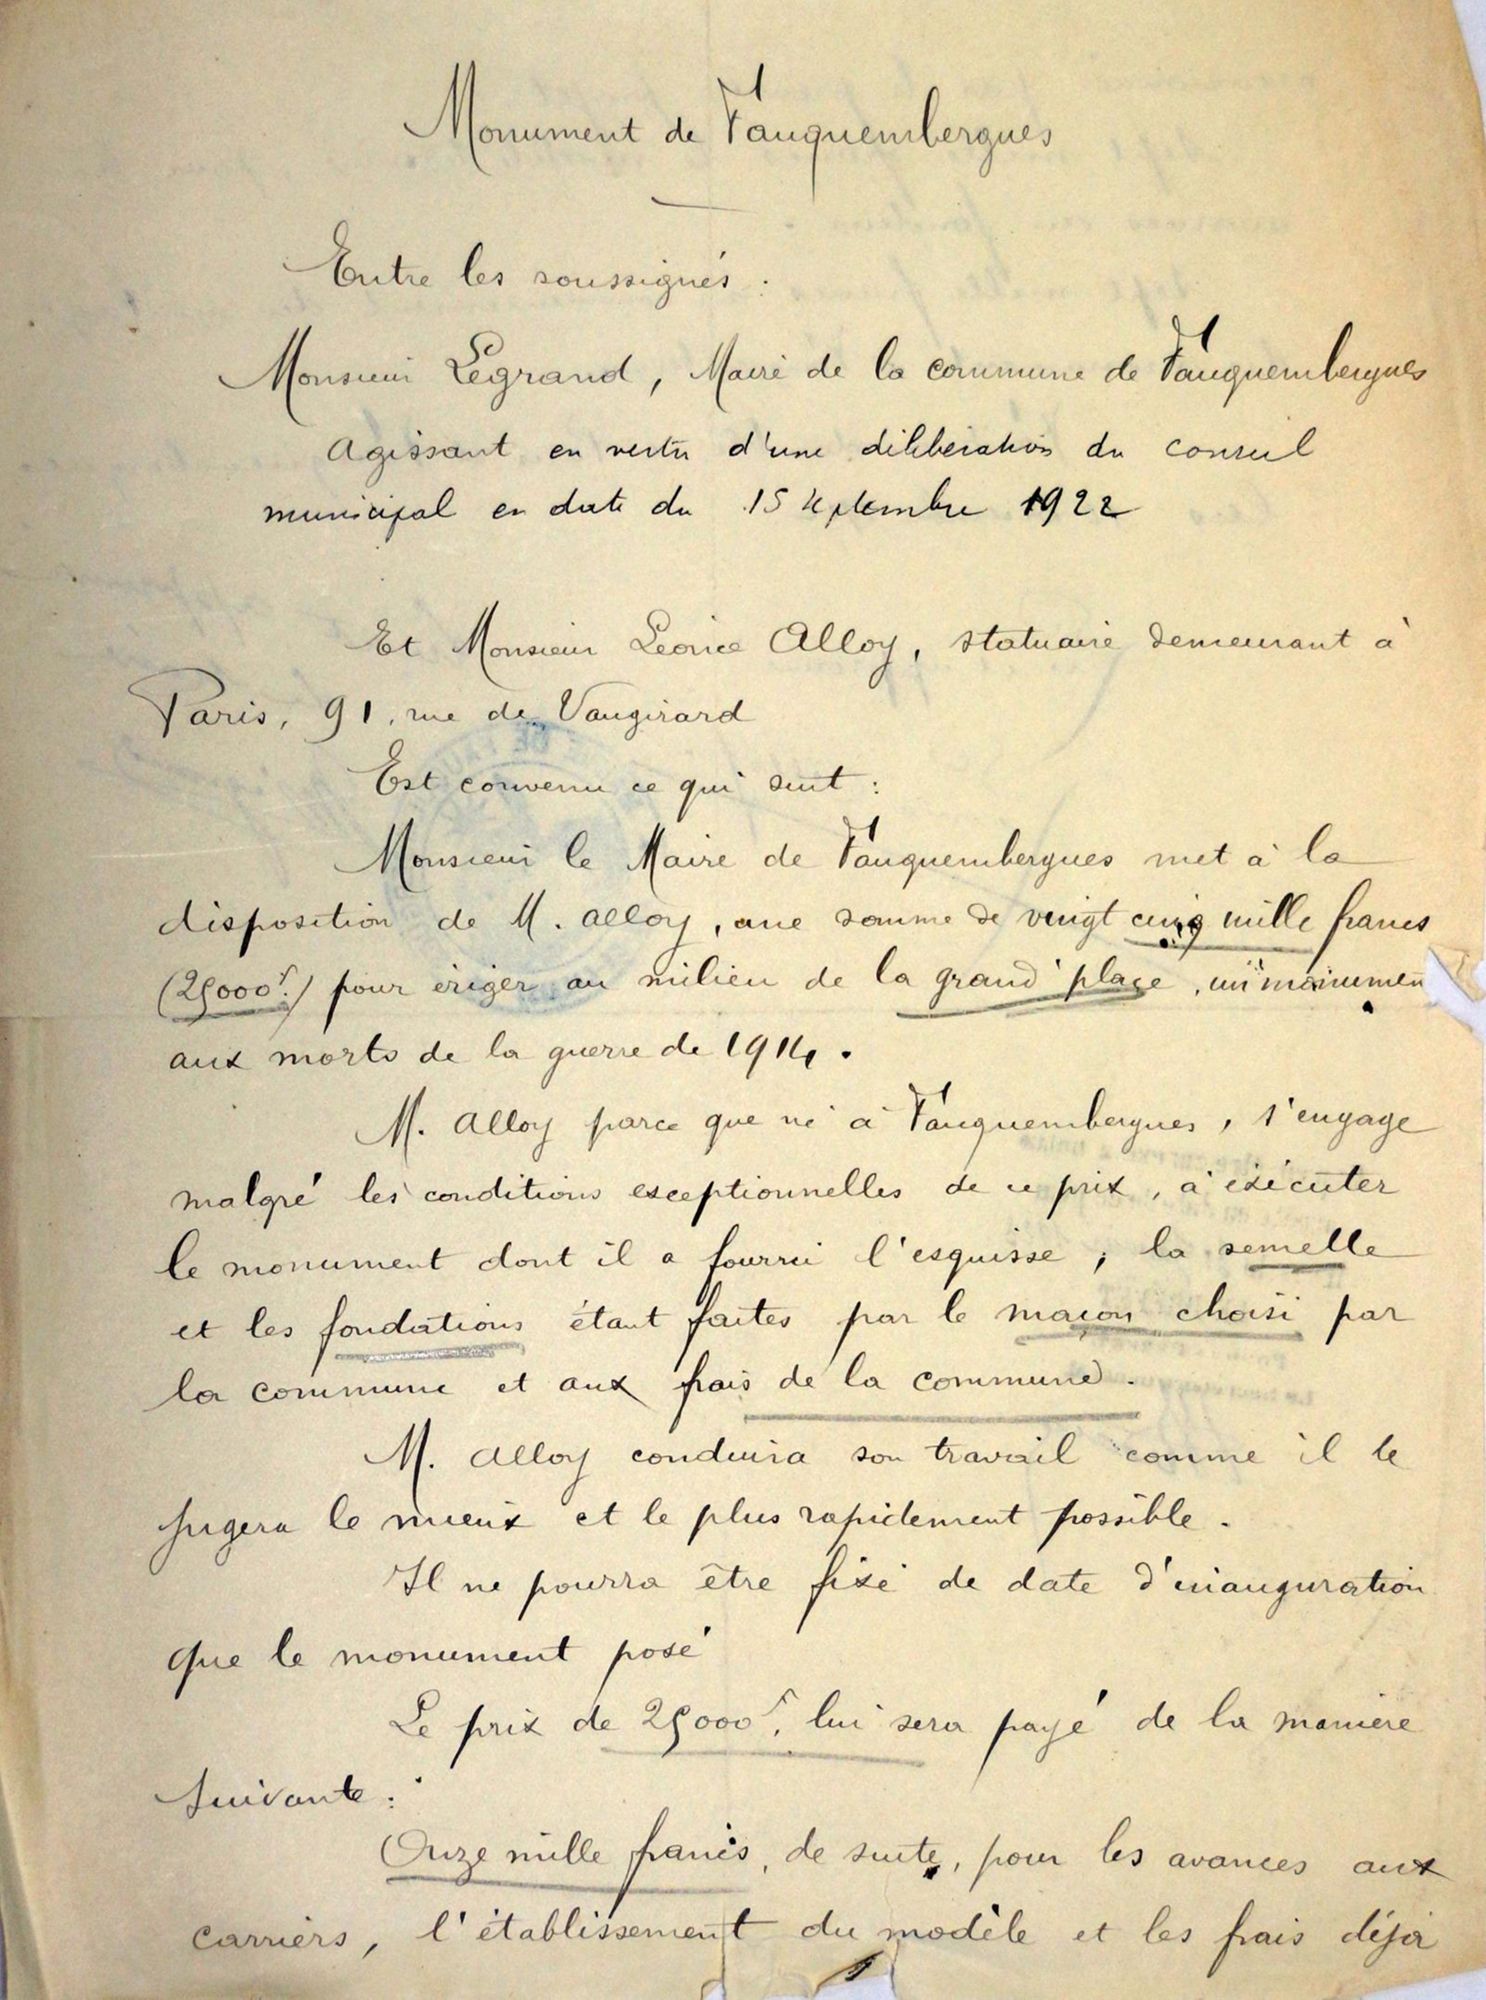 Monument de Fauquembergues
Entre les soussignés :
Monsieur Legrand, Maire de la commune de Fauquembergues
Agissant en vertu d'une délibération du conseil
municipal en date du 15 septembre 1922
Et Monsieur Léonce Alloy, statuaire demeurant à
Paris, 91, rue de Vaugirard
Est convenu ce qui suit :
Monsieur le Maire de Fauquembergues met à la
disposition de M. Alloy, une somme de vingt cinq mille francs
(25000f.) pour ériger au milieu de la grand'place, un monumen
aux morts de la guerre de 1914.
M. Alloy parce que né à Fauquembergues, s'engage
malgré les conditions exceptionnelles de ce prix, à exécuter
le monument dont il a fourni l'esquisse ; la semelle
et les fondations étant faites par le maçon choisi par
la commune et aux frais de la commune.
M. Alloy conduira son travail comme il le
jugera le mieux et le plus rapidement possible.
Il ne pourra être fixé de date d'inauguration
que le monument posé
Le prix de 25000f, lui sera payé de la manière
suivante :
Onze mille francs, de suite, pour les avances aux
carriers, l'établissement du modèle et les frais déjà